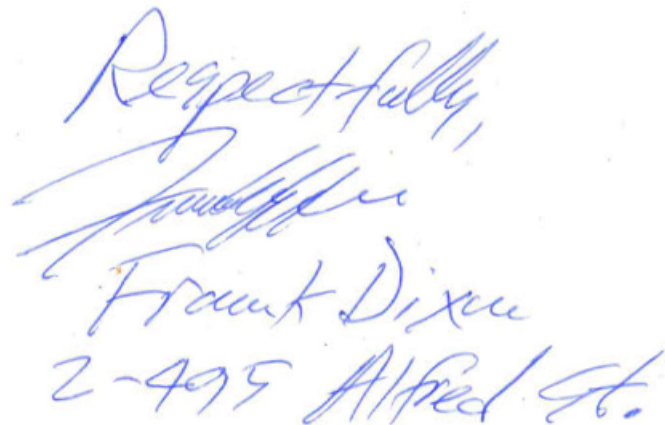 Respectfully,
Frank Dixon
2-495 Alfred St.